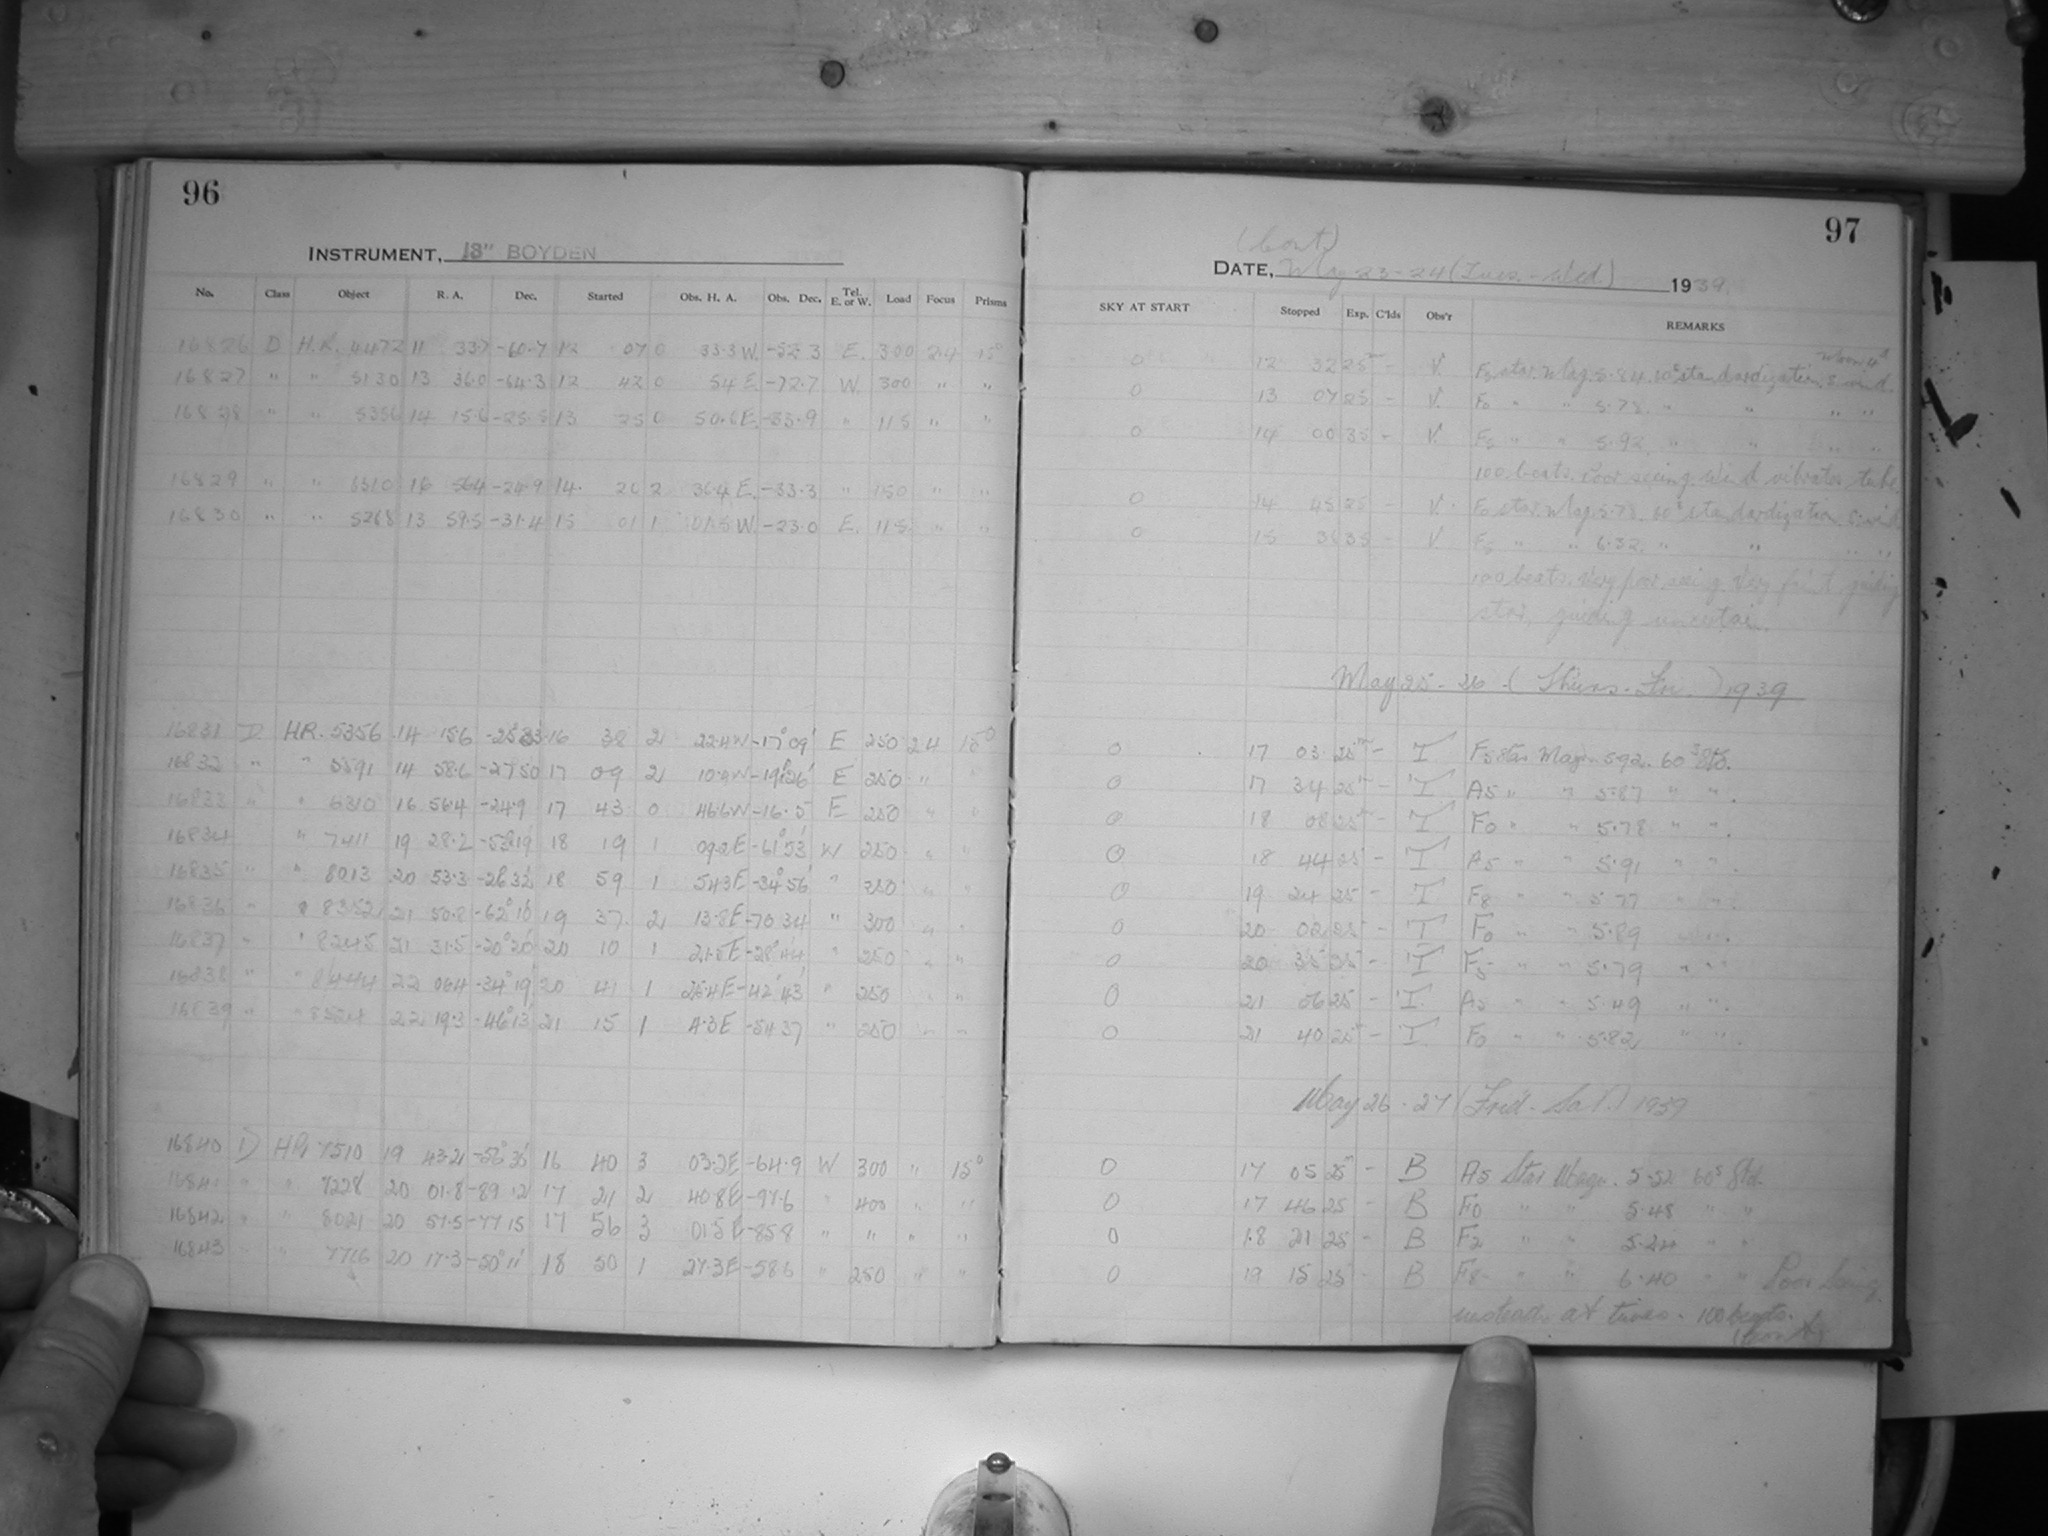 96
INSTRUMENT, 13" BOYDEN
No. Class Object R. A. Dec. Started Obs. H. A. Obs. Dec. Tel. E. or W. Load Focus Prisms
16826 D H.R. 4472 11 33.7 -60.7 12 07 0 33.3 W. -52.3 E. 300 2.4 15°
16827 " " 5130 13 36.0 -64.3 12 42 0 54 E. -72.7 W. 300 " "
16828 " " 5356 14 15.6 13 25 0 50.6 E. -33.9 " 115 " "
16829 " " 6310 16 56.4 -24.9 14. 20 2 36.4 E. -33.3 " 150 " "
16830 " " 5268 13 59.5 -31.4 15 01 1 01.5 W -23.0 E. 115 " "
16831 D HR. 5356 14 15.6 16 38 2 22.4W -17°09' E 250 2.4 15°
16832 " " 5591 14 58.6 -27 50 17 09 2 10.4W -19°26' E 250 "
16833 " " 6310 16 56.4 -24.9 17 43 0 46.6W -16.5 E 250 " "
16834 " 7411 19 28.2 -53°19' 18 19 1 09.2E -61°53' W 250 " "
16835 " " 8013 20 53.3 -26 32 18 59 1 54.3E -34°56' " 250 " "
16836 " " 8352 21 50.8 -62°10' 19 37 2 13.8E -70 34 " 300 " "
16837 " " 8245 21 31.5 -20°20' 20 10 1 21.8E -28°44' " 250 " "
16838 " " 8444 22 06.4 -34°19' 20 41 1 25.4E -42°43' " 250 " "
16839 " " 22 19.3 -46°13' 21 15 1 4.3E -54 37 " 250 " "
16840 D HR 7510 19 43.2 16 40 3 03.2E -64.9 W 300 " 15°
16841 " " 7228 20 01.8 -89 12 17 21 2 40.8E -97.6 " 400 " "
16842 " " 8021 20 57.5 -77 15 17 56 3 01.5E -85.8 " " " "
16843 " " 7716 20 17.3 -50°11' 18 50 1 27.3E -58.6 " 250 " "
97
(Cont)
DATE, May 23-24 (Tues. - Wed.) 1939.
SKY AT START Stopped Exp. C'lds Obs'r REMARKS
0 12 32 25m - V. F5 star. Mag. 5.84. 60s standardization. S. wind
0 13 07 25 - V. F0 " " 5.73. " " " "
0 14 00 35 - V. F5 " " 5.92. " " " "
100 beats. Poor seeing. Wind vibrates tube.
0 14 45 25 - V. F0 star. Mag. 5.78. 60s standardization. S. wind
0 15 36 35 - V. F5 " " 6.32. " " " "
100 beats. Very poor seeing. Very faint guiding
star, guiding uncertain.
May 25 - 26 - (Thurs. - Fri.) 1939
0 17 03 25m - T F5 Star Mag. 5.92. 60s Std.
0 17 34 25m - T A5 " " 5.87 " " .
0 18 08 25m - T F0 " " 5.78 " " .
0 18 44 25 - T A5 " " 5.91 " " .
0 19 24 25 - T F8 " " 5.77 " " .
0 20 02 25 - T F0 " " 5.89 " " .
0 20 35 25 - T F5 " " 5.79 " "
0 21 06 25 - T. A5 " " 5.49 " " .
0 21 40 25 - T F0 " " 5.82 " " .
May 26 - 27 (Frid - Sat.) 1939
0 17 05 25m - B A5 Star Magn. 5.52 60s Std.
0 17 46 25 - B F0 " " 5.48 " "
0 18 21 25 - B F2 " " 5.24 " "
0 19 15 25 - B F8 " " 6.40 " " Poor Seeing
at times. 100 beats.
(Cont)